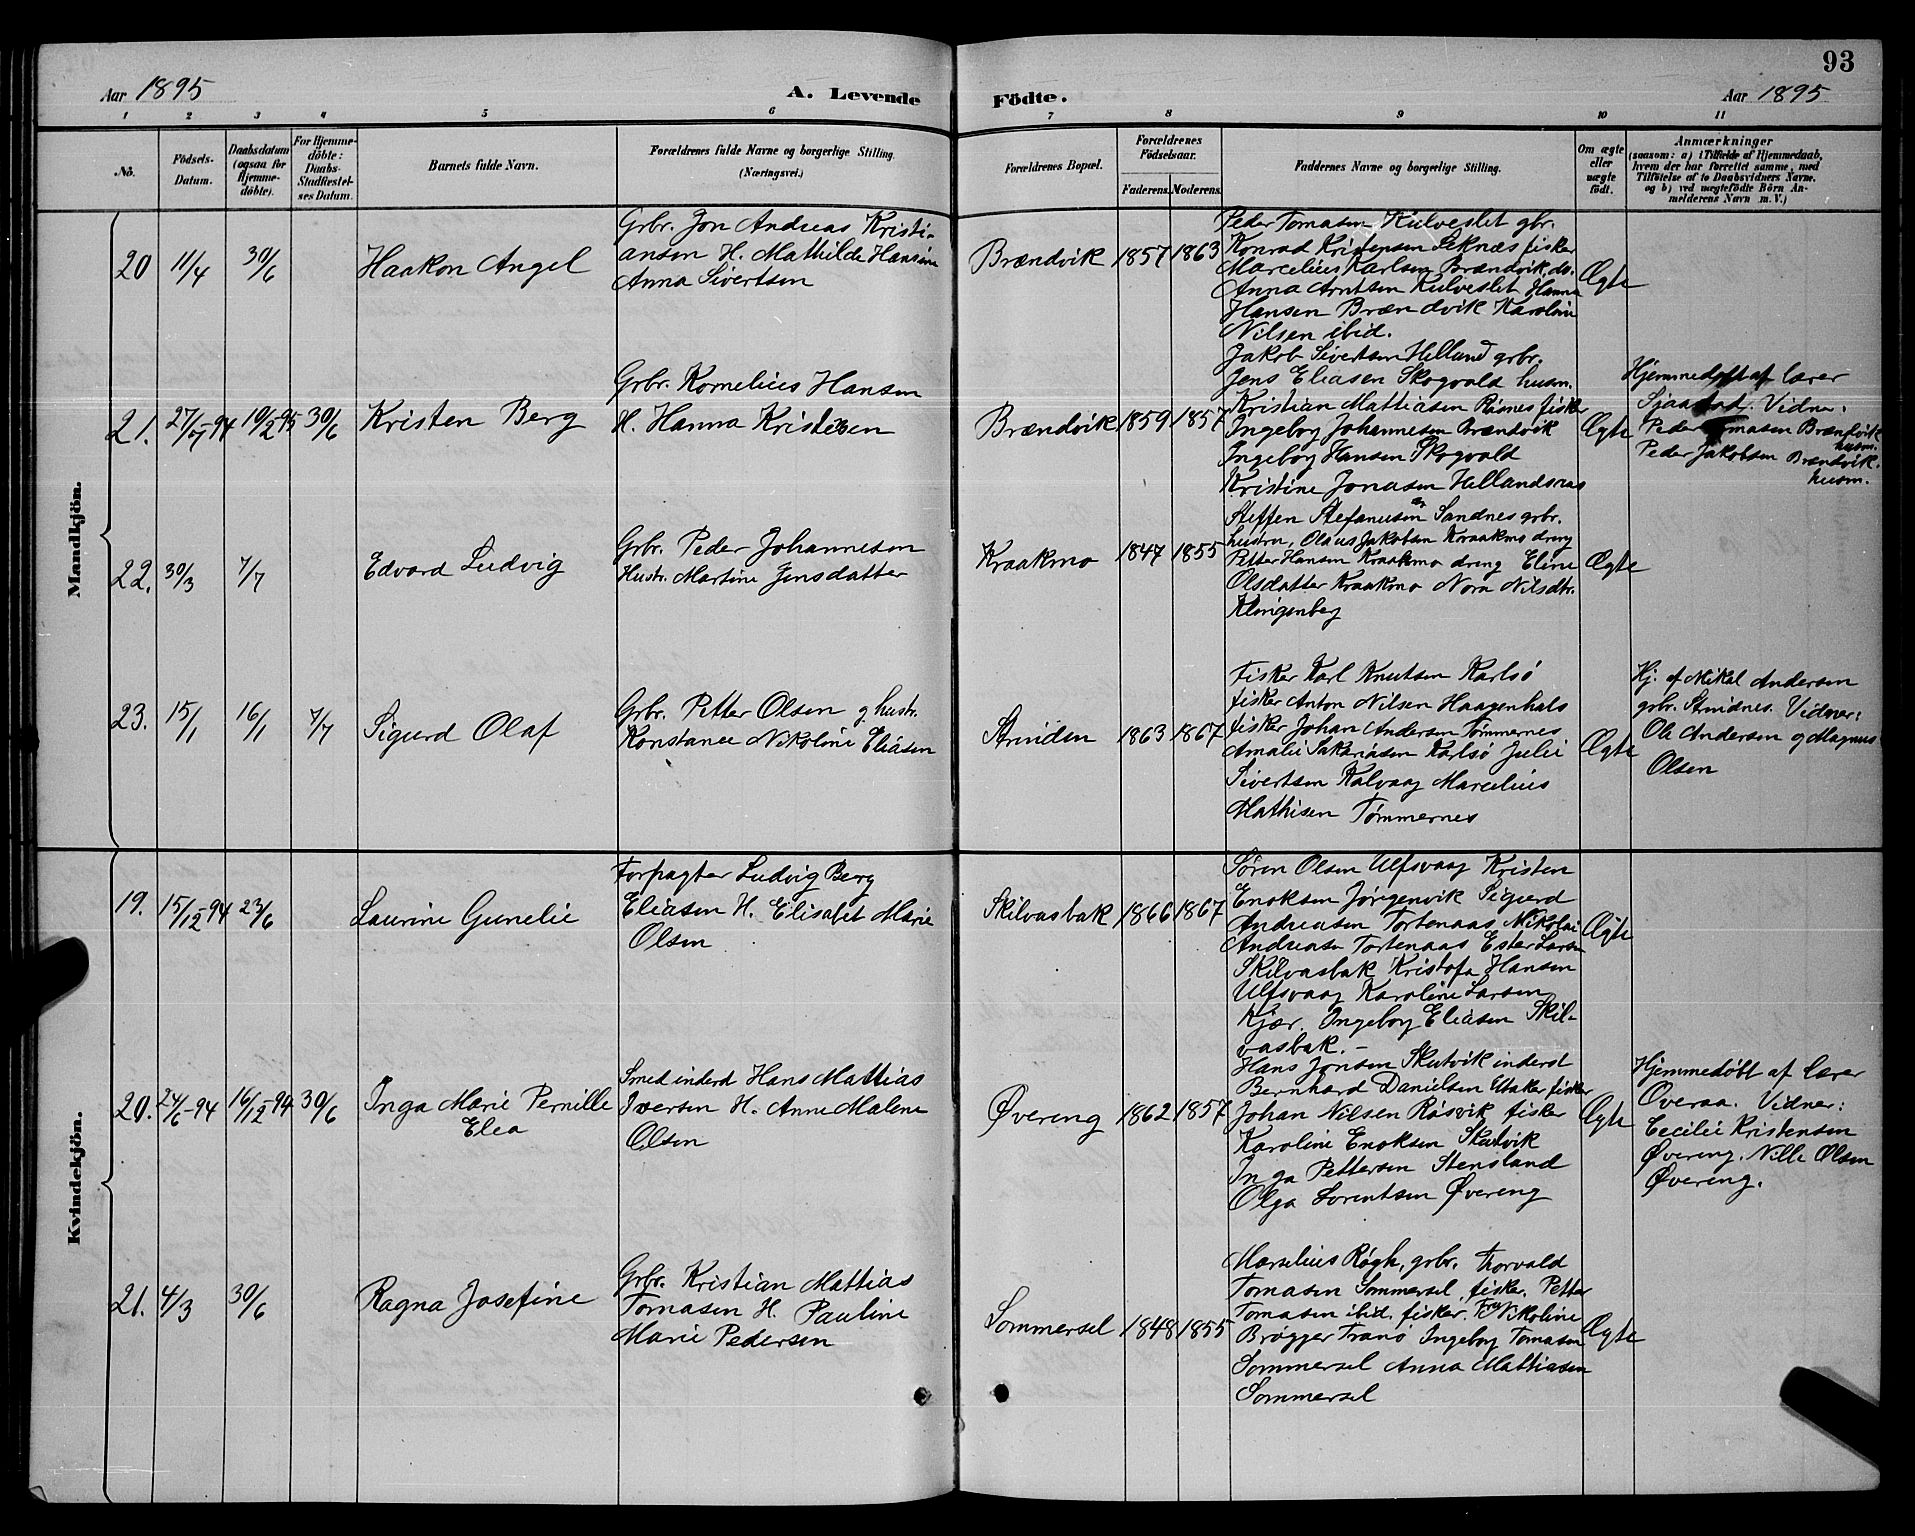 93
Aar 1895
A. Levende
Födte.
Aar 1895
1 2 3 4 5 6 7 8 9 10 11
No.
Födsels-
Datum.
Daabsdatum
(ogsaa for
Hjemme-
döbte).
For Hjemme-
döbte:
Daabs-
Stadfæstel-
ses Datum.
Barnets fulde Navn.
Forældrenes fulde Navne og borgerlige Stilling.
(Næringsvei.)
Forældrenes Bopæl.
Forældrenes
Födselsaar.
Faderens. Moderens.
Faddernes Navne og borgerlige Stilling.
Om ægte
eller
uægte
födt.
Anmærkninger
(saasom: a) i Tilfælde af Hjemmedaab,
hvem der har forrettet samme, med
Tilföielse af to Daabsvidners Navne.
og b) ved uægtefödte Börn An-
melderens Navn m. V.)
Mandkjön.
20 11/4 30/6 Haakon Angel
Grbr. Jon Andreas Kristi-
ansen H. Mathilde Hansine
Anna Sivertsen
Brændvik 1857 1863
Peder Tomasen Kulveslet gbr.
Konrad Kristensen Leknæs fisker
Marcelius Karlsen Brændvik, do.
Anna Arntsen Kulveslet Hanna
Hansen Brændvik Karoline
Nilsen ibid.
Ægte
21. 27/5-94 19/2 95 30/6 Kristen Berg
Grbr. Kornelius Hansen
H. Hanna Kristensen
Brændvik 1859 1857
Jakob Sivertsen Helland grbr.
Jens Eliasen Skogvold husm.
Kristian Mattiasen Røsnes fisker
Ingeborg Johannesen Brændvik
Ingeborg Hansen Skogvold
Kristine Jonasen Hellandsnes
Ægte
Hjemmedøbt af lærer
Sjaastad. Vidner:
Peder Tomasen Brændvik
husm.
Peder Jakobsen Brændvik.
husm.
22. 30/3 7/7 Edvard Ludvig
Grbr. Peder Johannesen
Hustr. Martine Jensdatter
Kraakmo 1847 1855
Steffen Stefanusen Sandnes grbr.
hustru, Olaus Jakobsen Kraakmo dreng
Petter Hansen Kraakmo dreng Eline
Olsdatter Kraakmo Nora Nilsdtr.
Klingenberg
Ægte
23. 15/1 16/1 7/7 Sigurd Olaf
Grbr. Petter Olsen g hustr.
Konstance Nikoline Eliasen
Strinden 1863 1867
Fisker Karl Knutsen Karlsö
fisker Anton Nilsen Haagenhals
fisker Johan Andersen Tömmernes,
Amalie Sakariasen Karlsö Julie
Sivertsen Kalvaag Marcelius
Mathisen Tömmernes
Ægte
Hj. af Mikal Andersen
grbr. Stridnes. Vidner:
Ole Andersen g Magnus
Olsen
Kvindekjön.
19. 15/12-94 23/6 Laurine Gunelie
Forpagter Ludvig Berg
Eliasen H. Elisabet Marie
Olsen
Skilvasbak 1866 1867
Sören Olsen Ulfsvaag Kristen
Enoksen Jörgenvik Sigurd
Andreasen Tortenaas Nikolai
Andreasen Tortenaas Ester Larsen
Skilvasbak Kristofa Hansen
Ulfsvaag Karoline Larsen
Kjær. Ingeborg Eliasen Skil-
vasbak.-
Ægte
20. 24/6-94 16/12-94 30/6 Inga Marie Pernille
Elea
Smed inderst Hans Mattias
Iversen H. Anne Malene
Olsen
Øvereng 1862 1857
Hans Jonsen Skutvik inderst
Bernhard Danielsen Utaker fisker
Johan Nilsen Røsvik fisker
Karoline Enoksen Skutvik
Inga Pettersen Stensland
Olga Lorentsen Øvereng
Ægte
Hjemmedøbt af lærer
Overaa. Vidner:
Cecilie Kristensen
Øvereng. Nille Olsen
Øvereng.
21. 4/3 30/6 Ragna Josefine
Grbr. Kristian Mattias
Tomasen H. Pauline
Marie Pedersen
Sommersel 1848 1855
Marselius Røgh, grbr. Thorvald
Tomasen Sommersel, fisker. Petter
Tomasen ibid. fisker. Fru Nikoline
Brøgger Tranö Ingeborg Tomasen
Sommersel Anna Mattiasen
Sommersel
Ægte